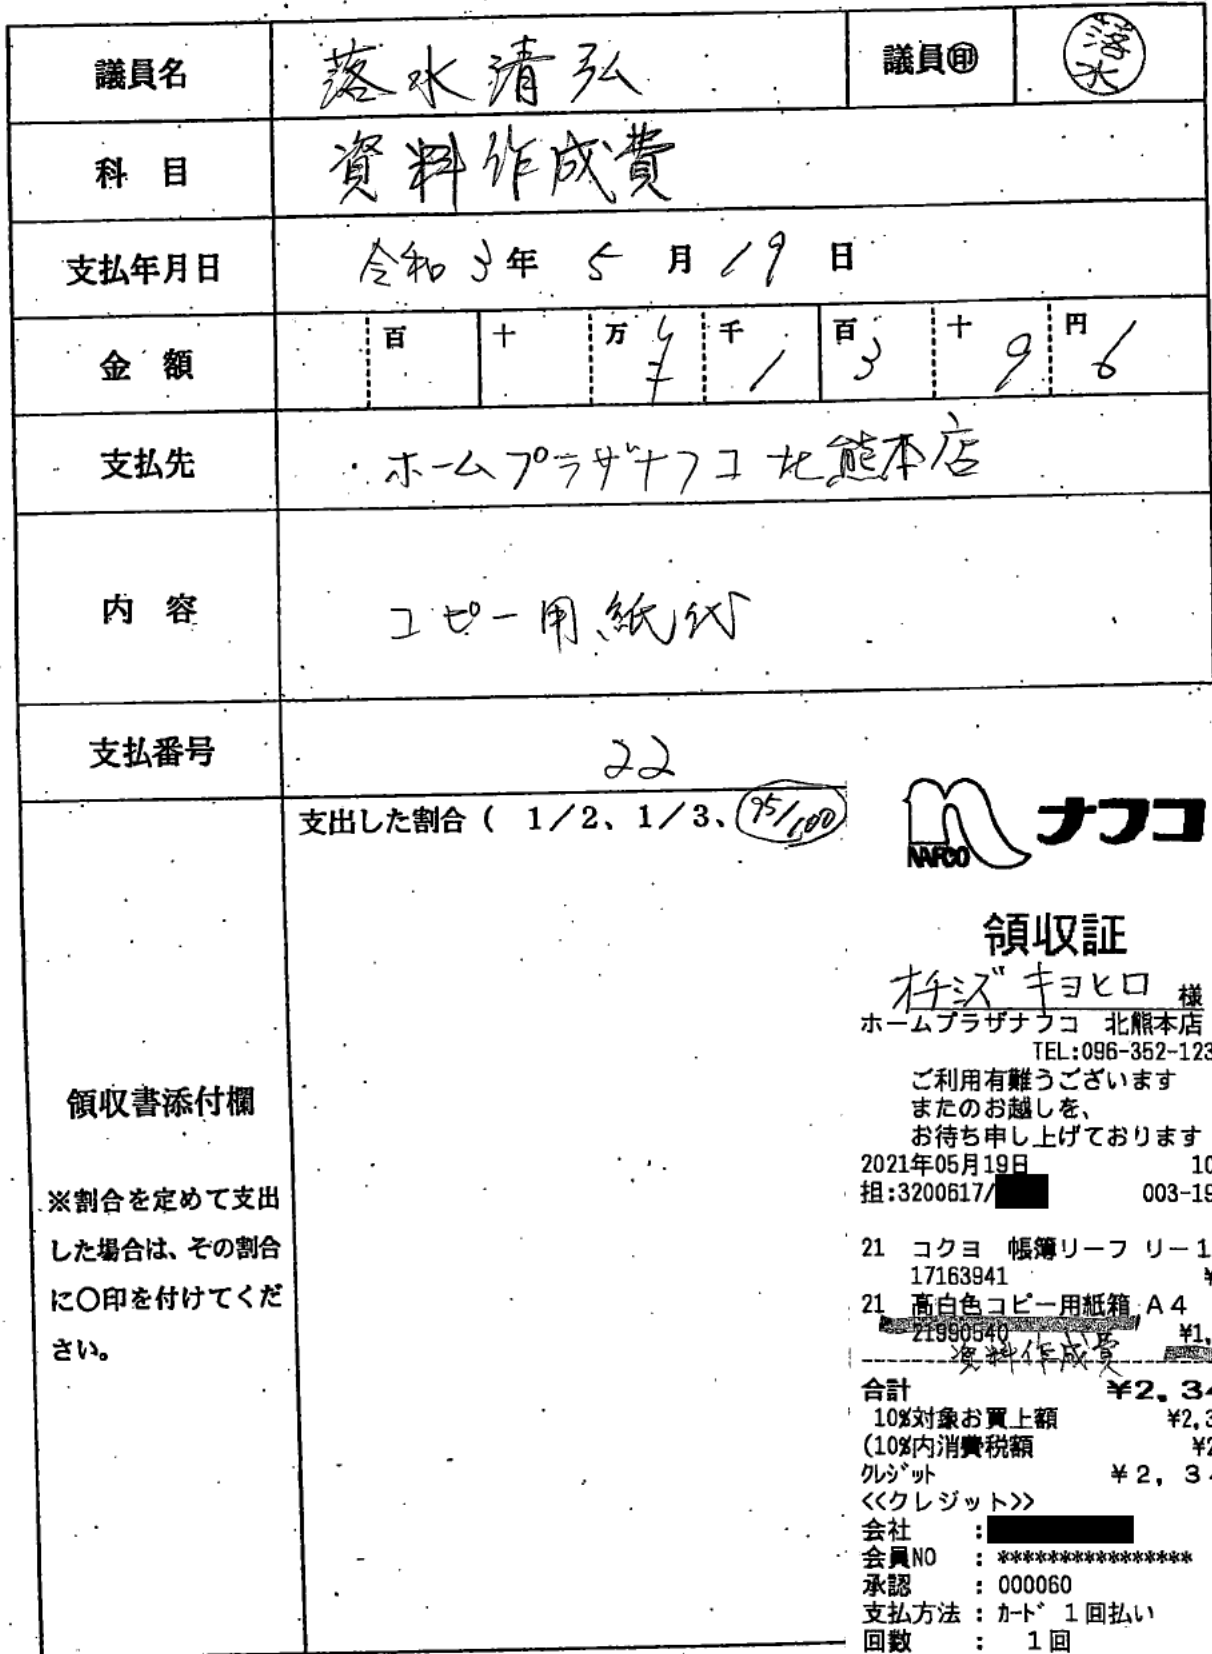 議員名 落水清弘 議員㊞ 落水
科目 資料作成費
支払年月日 令和3年5月19日
金額 百 十 万 ¥ 千 1 百 3 十 9 円 6
支払先 ホームプラザナフコ北熊本店
内容 コピー用紙代
支払番号 22
支出した割合( 1/2、1/3、95/100
領収書添付欄
※割合を定めて支出
した場合は、その割合
に〇印を付けてくだ
さい。
NAFCO ナフコ
領収証
オチミズ キヨヒロ 様
ホームプラザナフコ 北熊本店
TEL:096-352-123
ご利用有難うございます
またのお越しを、
お待ち申し上げております
2021年05月19日 10
担:3200617/ 003-19
21 コクヨ 帳簿リーフ リー1
17163941 ¥
21 高白色コピー用紙箱 A4
21990540 ¥1,
資料作成費
合計 ¥2,34
10%対象お買上額 ¥2,3
(10%内消費税額 ¥2
クレジット ¥2,34
<<クレジット>>
会社 :
会員NO : ****************
承認 : 000060
支払方法 : カード 1回払い
回数 : 1回